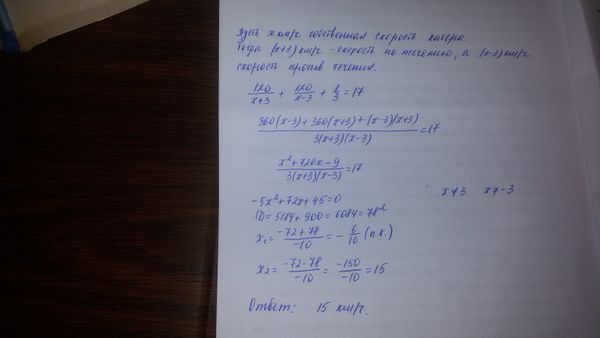 Пусть x км/ч собственная скорость катера.
Тогда (x+3) км/ч - скорость по течению, а (x-3) км/ч
скорость против течения.
120/(x+3) + 120/(x-3) + 1/3 = 17
(360(x-3)+360(x+3)+(x-3)(x+3))/(3(x+3)(x-3)) = 17
(x²+720x-9)/(3(x+3)(x-3)) = 17
-5x²+72x+45=0 x≠3 x≠-3
D=5184+900=6084=78²
x₁=(-72+78)/(-10)=-6/10 (п.к.)
x₂=(-72-78)/(-10)=(-150)/(-10)=15.
Ответ: 15 км/ч.